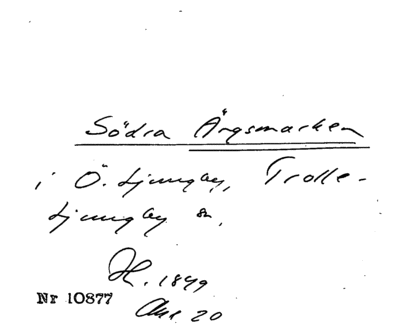 Södra Ängsmarken
i Ö. Ljungby, Trolle-
Ljungby sn,
H. 1849
Nr 10877
20